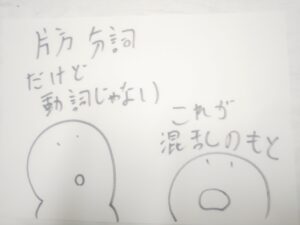 片方 分詞
だけど
動詞じゃない
これが
混乱のもと